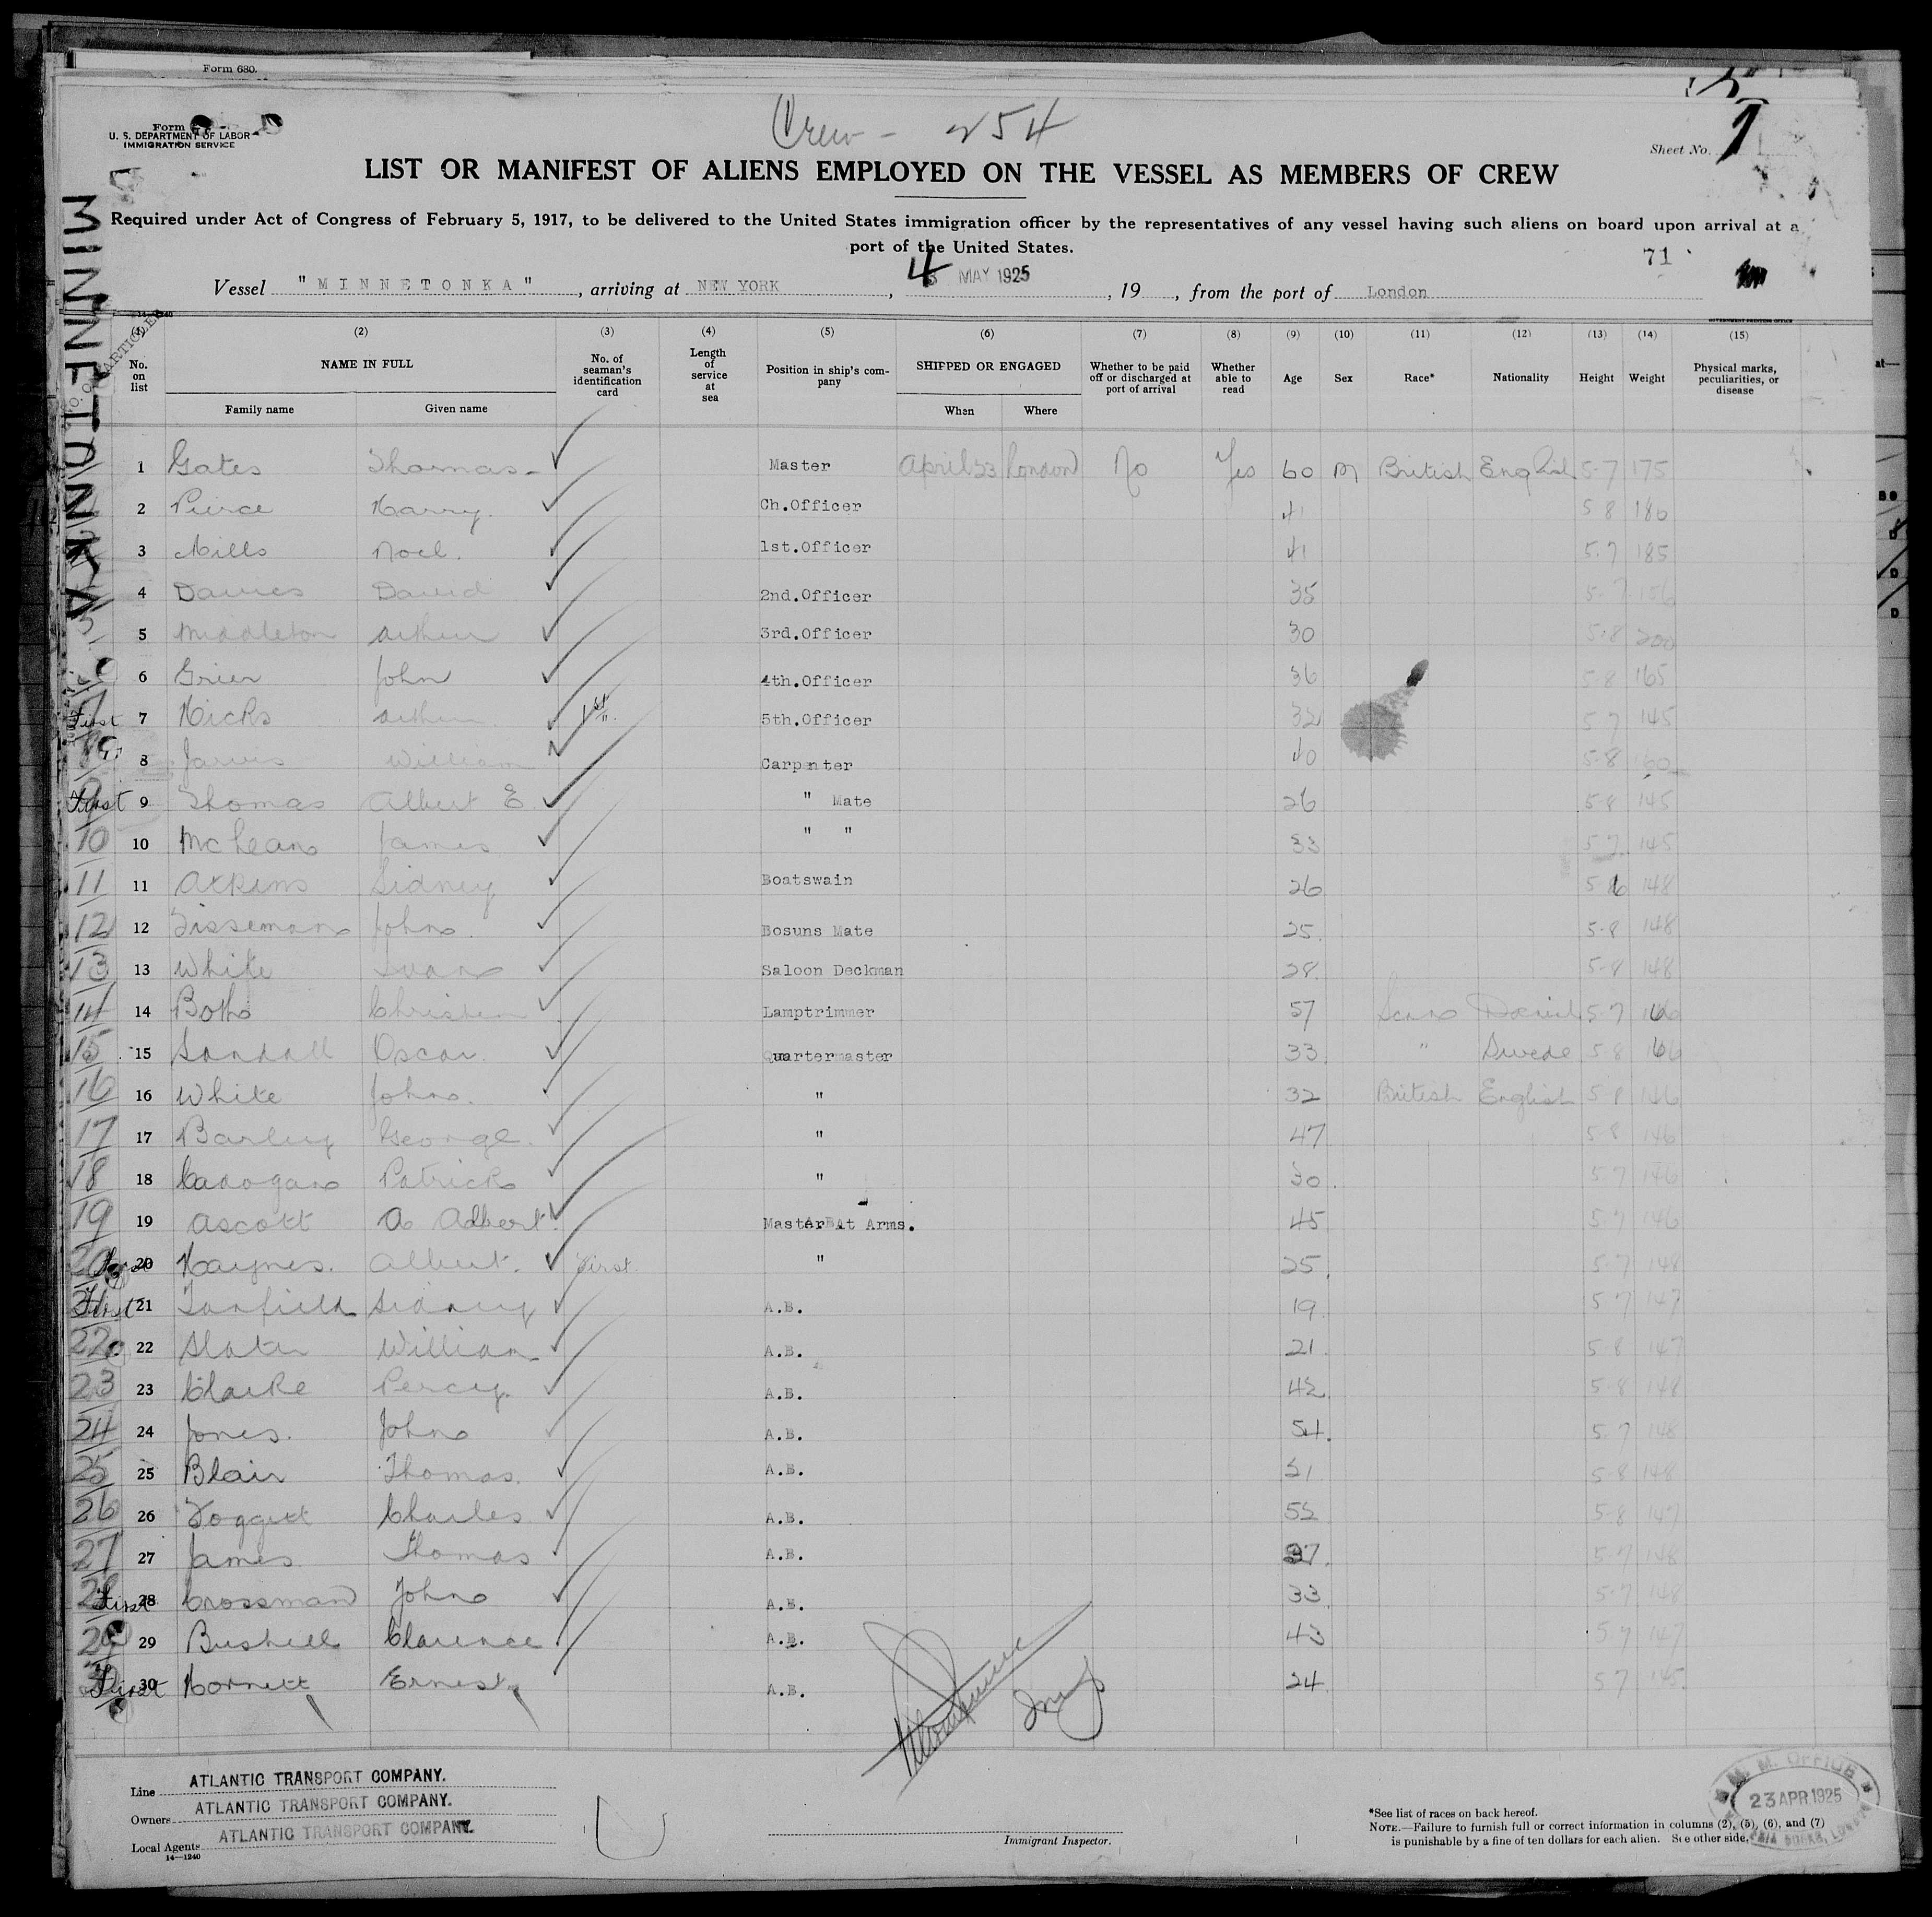 Form 680.
Form
U. S. DEPARTMENT OF LABOR
IMMIGRATION SERVICE
Crew - 254
Sheet No. 1
LIST OR MANIFEST OF ALIENS EMPLOYED ON THE VESSEL AS MEMBERS OF CREW
Required under Act of Congress of February 5, 1917, to be delivered to the United States immigration officer by the representatives of any vessel having such aliens on board upon arrival at a
port of the United States.
71
MINNETONKA
Vessel "MINNETONKA", arriving at NEW YORK, 4 MAY 1925, 19, from the port of London
14-1240
GOVERNMENT PRINTING OFFICE
(2) (3) (4) (5) (6) (7) (8) (9) (10) (11) (12) (13) (14) (15)
No. on list NAME IN FULL No. of seaman's identification card Length of service at sea Position in ship's company SHIPPED OR ENGAGED Whether to be paid off or discharged at port of arrival Whether able to read Age Sex Race* Nationality Height Weight Physical marks, peculiarities, or disease
Family name Given name When Where
1 Gates Thomas Master April 23 London No Yes 60 M British English 5-7 175
2 Pierce Harry Ch.Officer 41 5 8 180
3 Mills Noel. 1st.Officer 41 5-7 185
4 Davies David 2nd.Officer 35 5-7 156
5 Middleton Arthur 3rd.Officer 30 5-8 200
6 Grier John 4th.Officer 36 5-8 165
First 7 Hicks Arthur 1st 5th.Officer 32 5 7 145
8 Jarvis William Carpenter 40 5-8 160
First 9 Thomas Albert E " Mate 26 5-8 145
10 10 McLean James " " 33 5-7 145
11 11 Atkins Sidney Boatswain 26 5 148
12 12 Tisseman John Bosuns Mate 25. 5-8 148
13 13 White Ivan Saloon Deckman 28 5-8 148
14 14 Both Christian Lamptrimmer 57 Scan 5-7
15 15 Sandall Oscar Quartermaster 33 " Swede 5 8
16 16 White John " 32 British English 5 8 146
17 17 Barley George " 47 5 8 146
18 18 Cadogan Patrick " 30 5-7 146
19 19 Ascott A Albert Master At Arms. 45 5-7 146
20 20 Haynes. Albert. First. " 25 5-7 148
First 21 Tanfield Sidney A.B. 19 5 7 147
22 22 Slater William A.B. 21 5-8 147
23 23 Clarke Percy. A.B. 42 5-8 148
24 24 Jones. John A.B. 54. 5-7 148
25 25 Blair Thomas. A.B. 5-8 148
26 26 Foggitt Charles A.B. 52 5-8 147
27 27 James Thomas A.B. 5-7 148
28 First 28 Crossman John A.B. 33 5-7 148
29 29 Bushell Clarence A.B. 43 5 7 147
30 First 30 Hornett Ernest A.B. 24 5 7 145
Line ATLANTIC TRANSPORT COMPANY.
Owners ATLANTIC TRANSPORT COMPANY.
Local Agents ATLANTIC TRANSPORT COMPANY.
14—1240
Immigrant Inspector.
*See list of races on back hereof.
NOTE.—Failure to furnish full or correct information in columns (2), (5), (6), and (7)
is punishable by a fine of ten dollars for each alien. See other side.
M. M. OFFICE
23 APR.1925